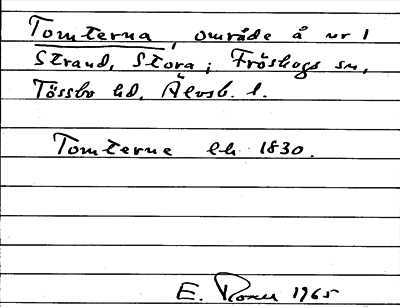 Tomterna, område å nr 1
Strand, Stora; Fröskogs sn,
Tössbo hd, Älvsb. l.
Tomterne lh 1830.
E. 1965